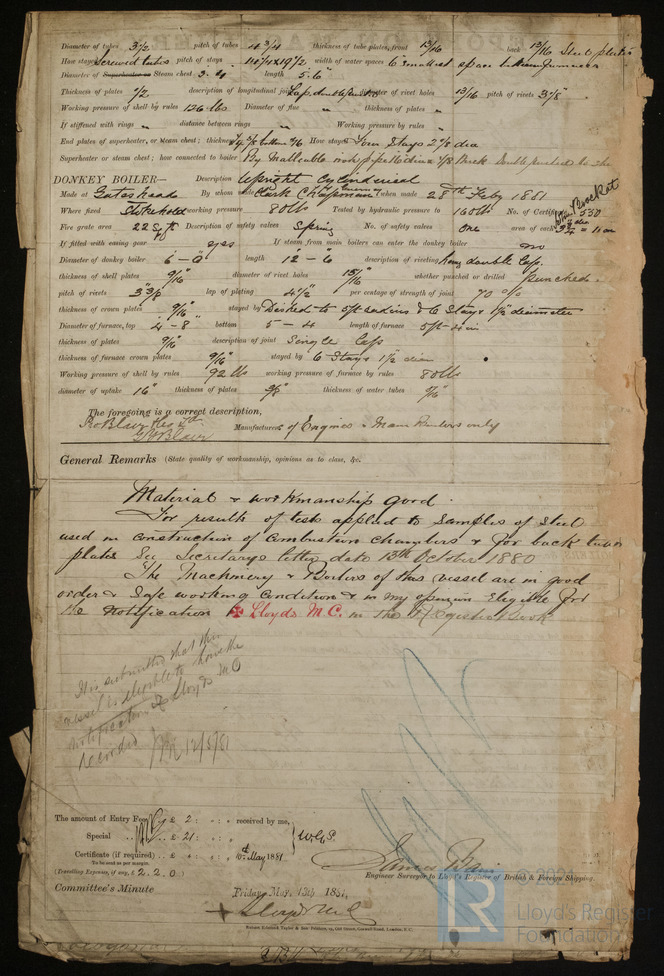 Diameter of tubes 3 1/2 pitch of tubes 4 3/4 thickness of tube plates, front 13/16 back 13/16 Steel plates
How stayed Screwed tubes pitch of stays width of water spaces 6 smallest space between furnaces
Diameter of Superheater or Steam chest 3.4 length 5.6
Thickness of plates 1/2 description of longitudinal joint Lap double diameter of rivet holes 13/16 pitch of rivets 3 1/8"
Working pressure of shell by rules 126 lbs Diameter of flue " thickness of plates "
If stiffened with rings " distance between rings " Working pressure by rules "
End plates of superheater, or steam chest; thickness How stayed Four Stays 2 5/8 dia
Superheater or steam chest; how connected to boiler By Malleable
DONKEY BOILER— Description Upright Cylindrical
Made at Gateshead By whom Clark Chapman when made 28th Feby 1881
Where fixed Stokehold working pressure 80 lbs Tested by hydraulic pressure to 160 lbs No. of Certificate 550
Fire grate area 22 Sq ft Description of safety valves Spring No. of safety valves one area of each
If fitted with easing gear yes If steam from main boilers can enter the donkey boiler no
Diameter of donkey boiler 6-0 length 12-6 description of riveting double Lap.
thickness of shell plates 9/16" diameter of rivet holes 15/16" whether punched or drilled punched.
pitch of rivets 3" 3/8 lap of plating 4 1/2" per centage of strength of joint 70 %
thickness of crown plates 9/16" stayed by Dished to 5ft radius & 6 Stays 1 1/2 diameter
Diameter of furnace, top 4-8" bottom 5-4 length of furnace 5ft-4in
thickness of plates 9/16" description of joint Single Lap
thickness of furnace crown plates 9/16" stayed by 6 Stays 1 1/2" dia
Working pressure of shell by rules 92 lbs working pressure of furnace by rules 80 lbs
diameter of uptake 16" thickness of plates 3/8" thickness of water tubes 7/16"
The foregoing is a correct description,
G Blair Manufacturer of Engines & Main Boilers only
General Remarks (State quality of workmanship, opinions as to class, &c.
Material & workmanship good.
For results of tests applied to samples of steel
used in construction of combustion chambers & for back tube
plates See Secretarys letter date 13th October 1880
The Machinery & Boilers of this vessel are in good
order & safe working condition & in my opinion Eligible for
the notification ✠ Lloyds M.C. in the Register Book
It is submitted that this
vessel is eligible to have the
notification ✠ Lloyds MC
recorded 12/5/81
The amount of Entry Fee £ 2 : " : " received by me,
Special .. £ 21 : " : "
Certificate (if required) .. £ " : " : " May 1881
To be sent as per margin.
(Travelling Expenses, if any, £ 2.2.0)
James
Engineer Surveyor to Lloyd's Register of British & Foreign Shipping.
Committee's Minute Friday May 13th 1881.
+ Lloyd's M.C
© 2021
LR
Lloyd's Register
Foundation